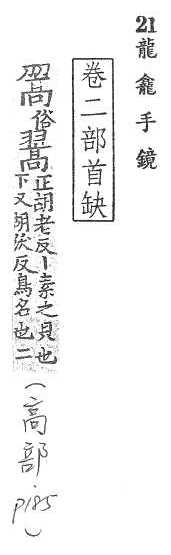 21 龍龕手鏡
卷二部首缺
俗翯正胡老反卜素之貝也
下又胡沃反鳥名也二
(高部 P185)